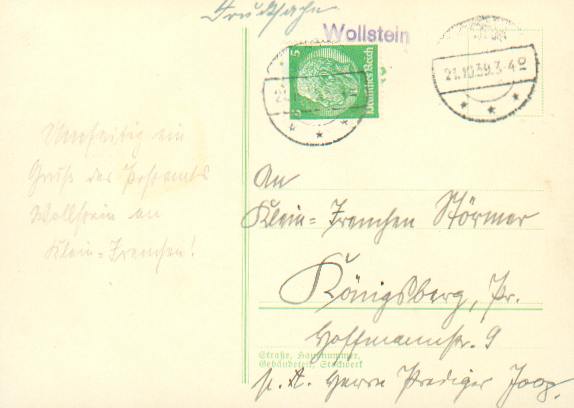 Drucksache
Wollstein
5 Deutsches Reich 5
21.10.39.3-4
Umseitig ein
Gruß des Postamts
Wollstein an
Klein-Frenchen!
An
Klein-Frenchen Störmer
Königsberg, Pr.
Hoffmannstr. 9
Straße, Hausnummer,
Gebäudeteil, Stockwerk
p. A. Herrn Prediger Joop.